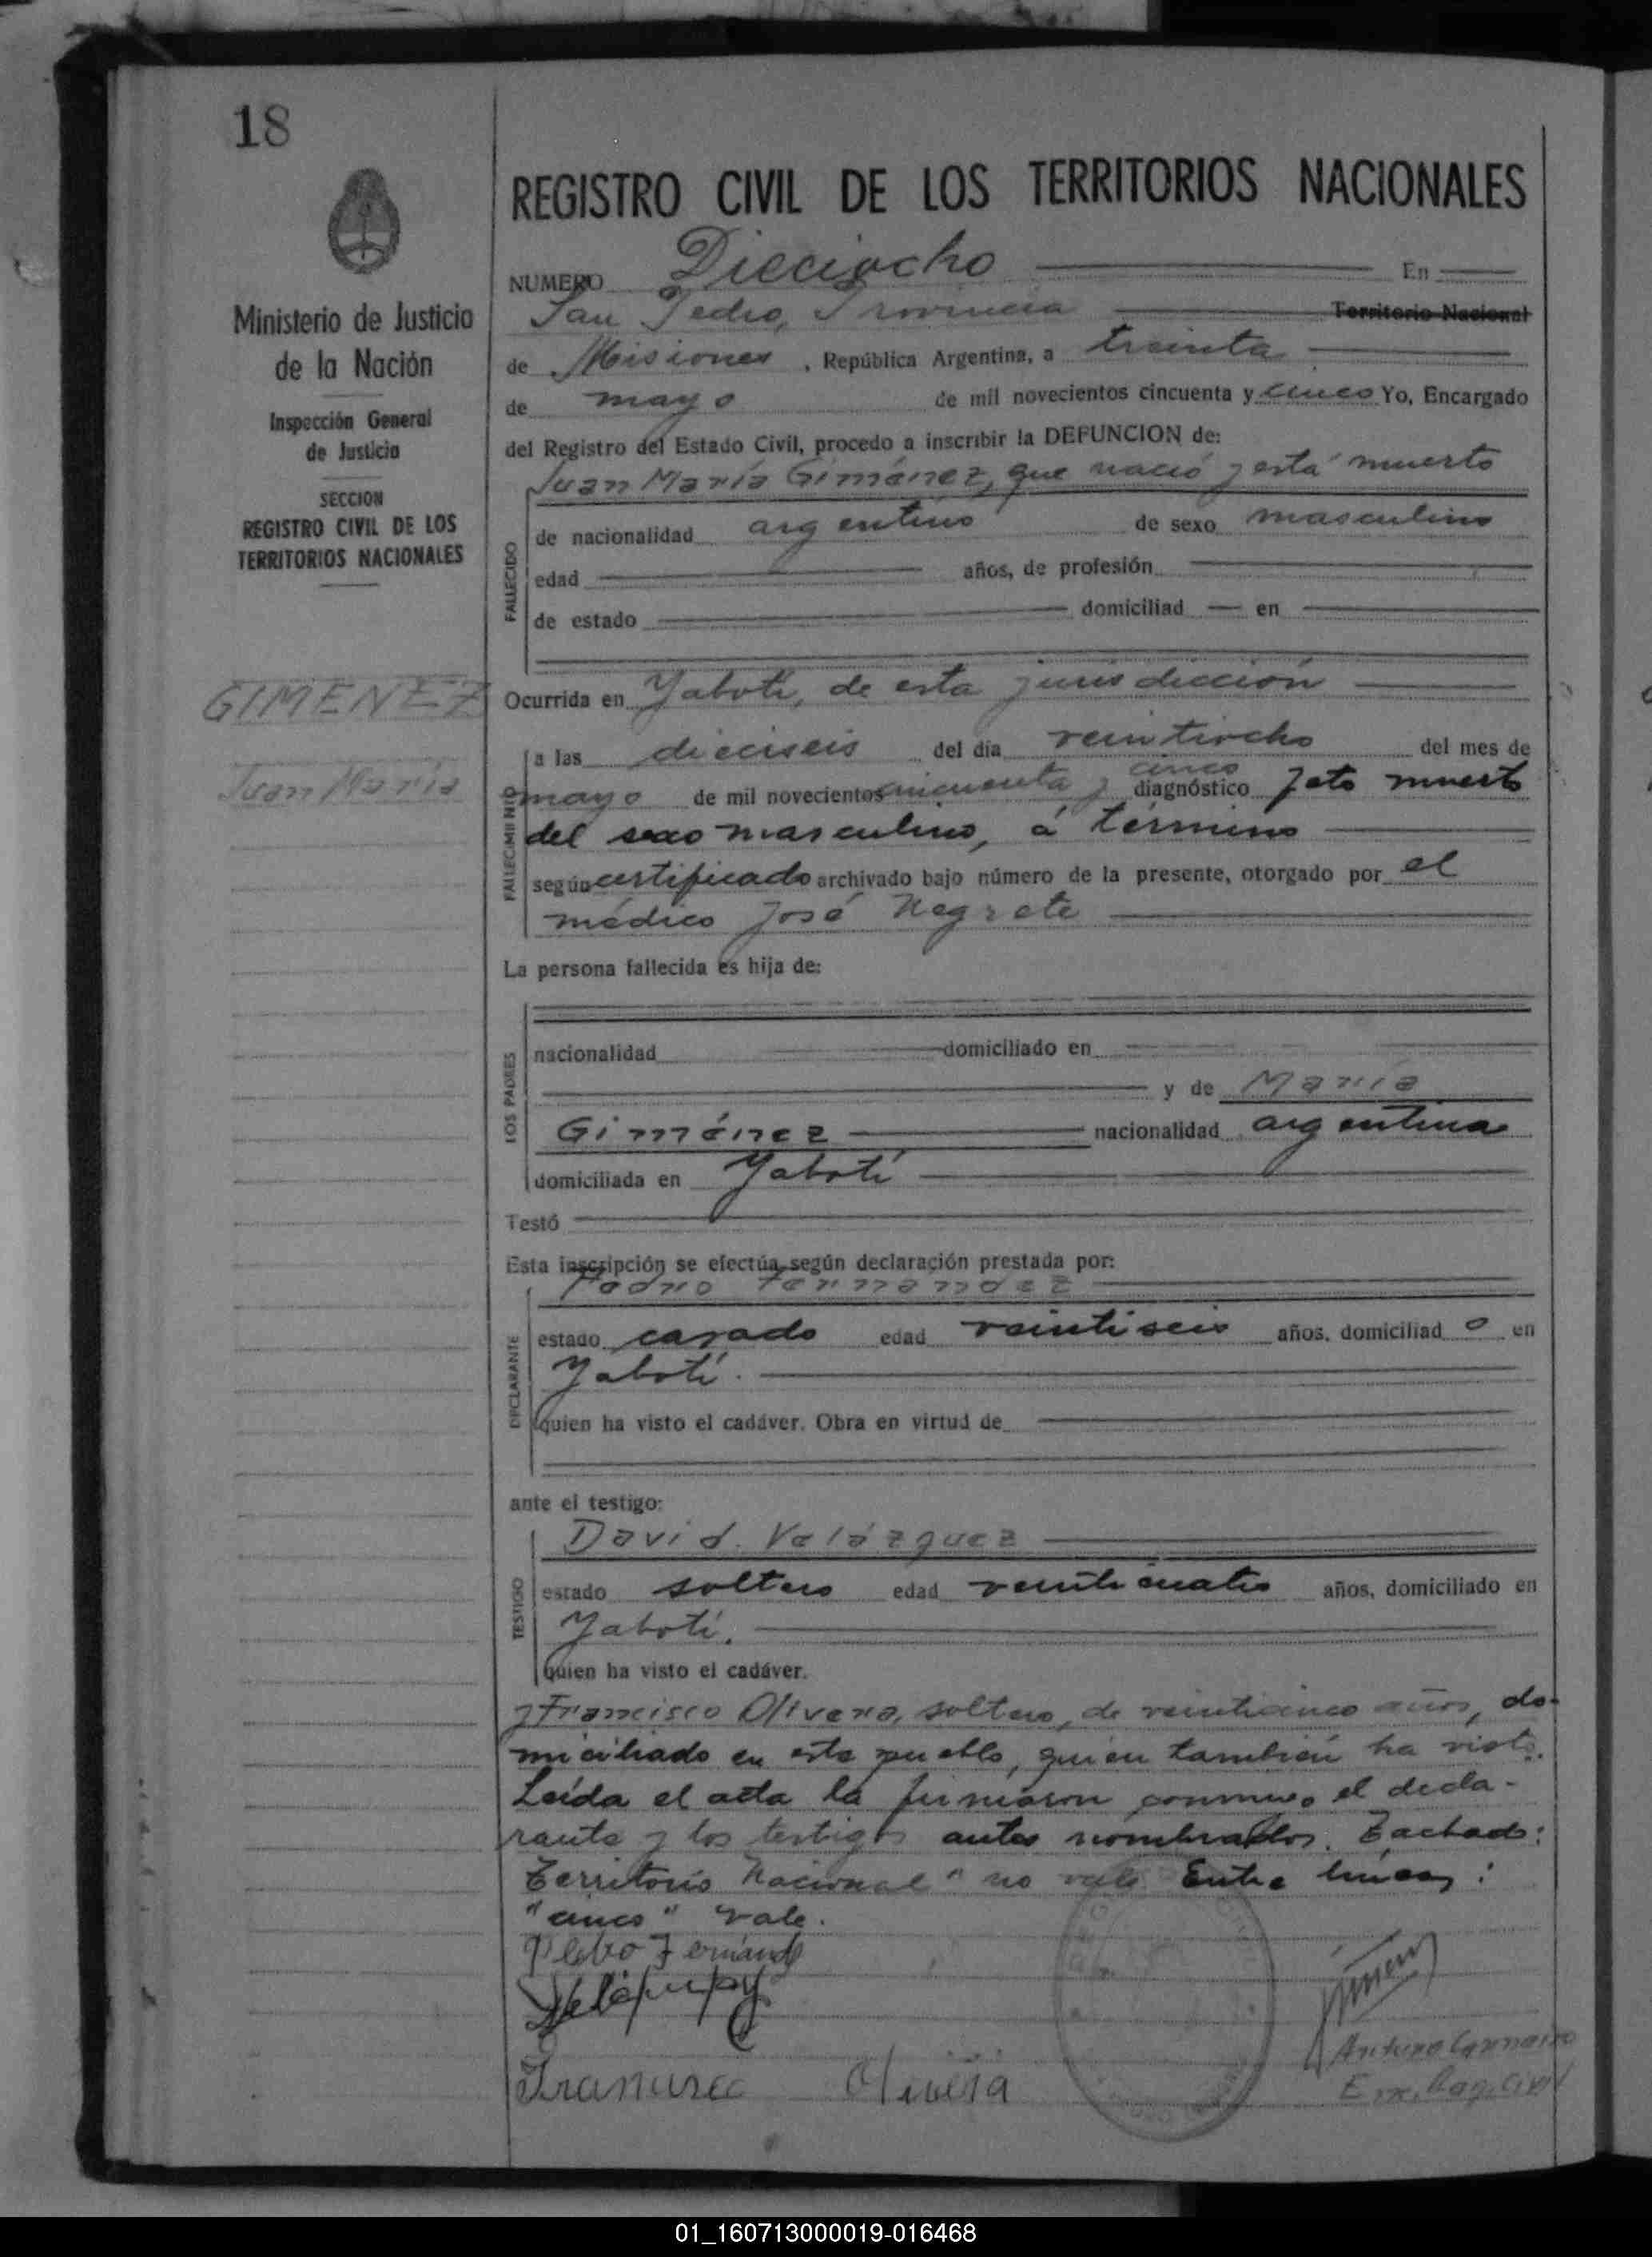 18
REGISTRO CIVIL DE LOS TERRITORIOS NACIONALES
Ministerio de Justicia
de la Nación
Inspección General
de Justicia
SECCION
REGISTRO CIVIL DE LOS
TERRITORIOS NACIONALES
GIMENEZ
Juan María
NUMERO Dieciocho En
San Pedro, Provincia Territorio Nacional
de Misiones, República Argentina, a treinta
de mayo de mil novecientos cincuenta y cinco Yo, Encargado
del Registro del Estado Civil, procedo a inscribir la DEFUNCION de:
Juan María Giménez, que nació y está muerto
FALLECIDO
de nacionalidad argentino de sexo masculino
edad años, de profesión
de estado domiciliad en
Ocurrida en Yabotí, de esta jurisdicción
FALLECIMIENTO
a las dieciseis del día veintiocho del mes de
cinco
mayo de mil novecientos cincuenta y diagnóstico feto muerto
del sexo masculino, a término
según certificado archivado bajo número de la presente, otorgado por el
médico José Negrete
La persona fallecida es hija de:
LOS PADRES
nacionalidad domiciliado en
y de María
Giménez nacionalidad argentina
domiciliada en Yabotí
Testó
Esta inscripción se efectúa según declaración prestada por:
Pedro Fernandez
DECLARANTE
estado casado edad veintiseis años, domiciliad o en
Yabotí.
quien ha visto el cadáver. Obra en virtud de
ante el testigo:
David Velázquez
TESTIGO
estado soltero edad veinticuatro años, domiciliado en
Yabotí.
quien ha visto el cadáver.
y Francisco Olivera, soltero, de veinticinco años, do-
miciliado en este pueblo, quien también ha visto.
Leída el acta la firmaron conmigo el decla-
rante y los testigos antes nombrados. Tachado:
Territorio Nacional" no vale. Entre líneas:
"cinco" vale.
Pedro Fernández
Francisco Olivera
Arturo
Enc. Reg. Civil
01_160713000019-016468